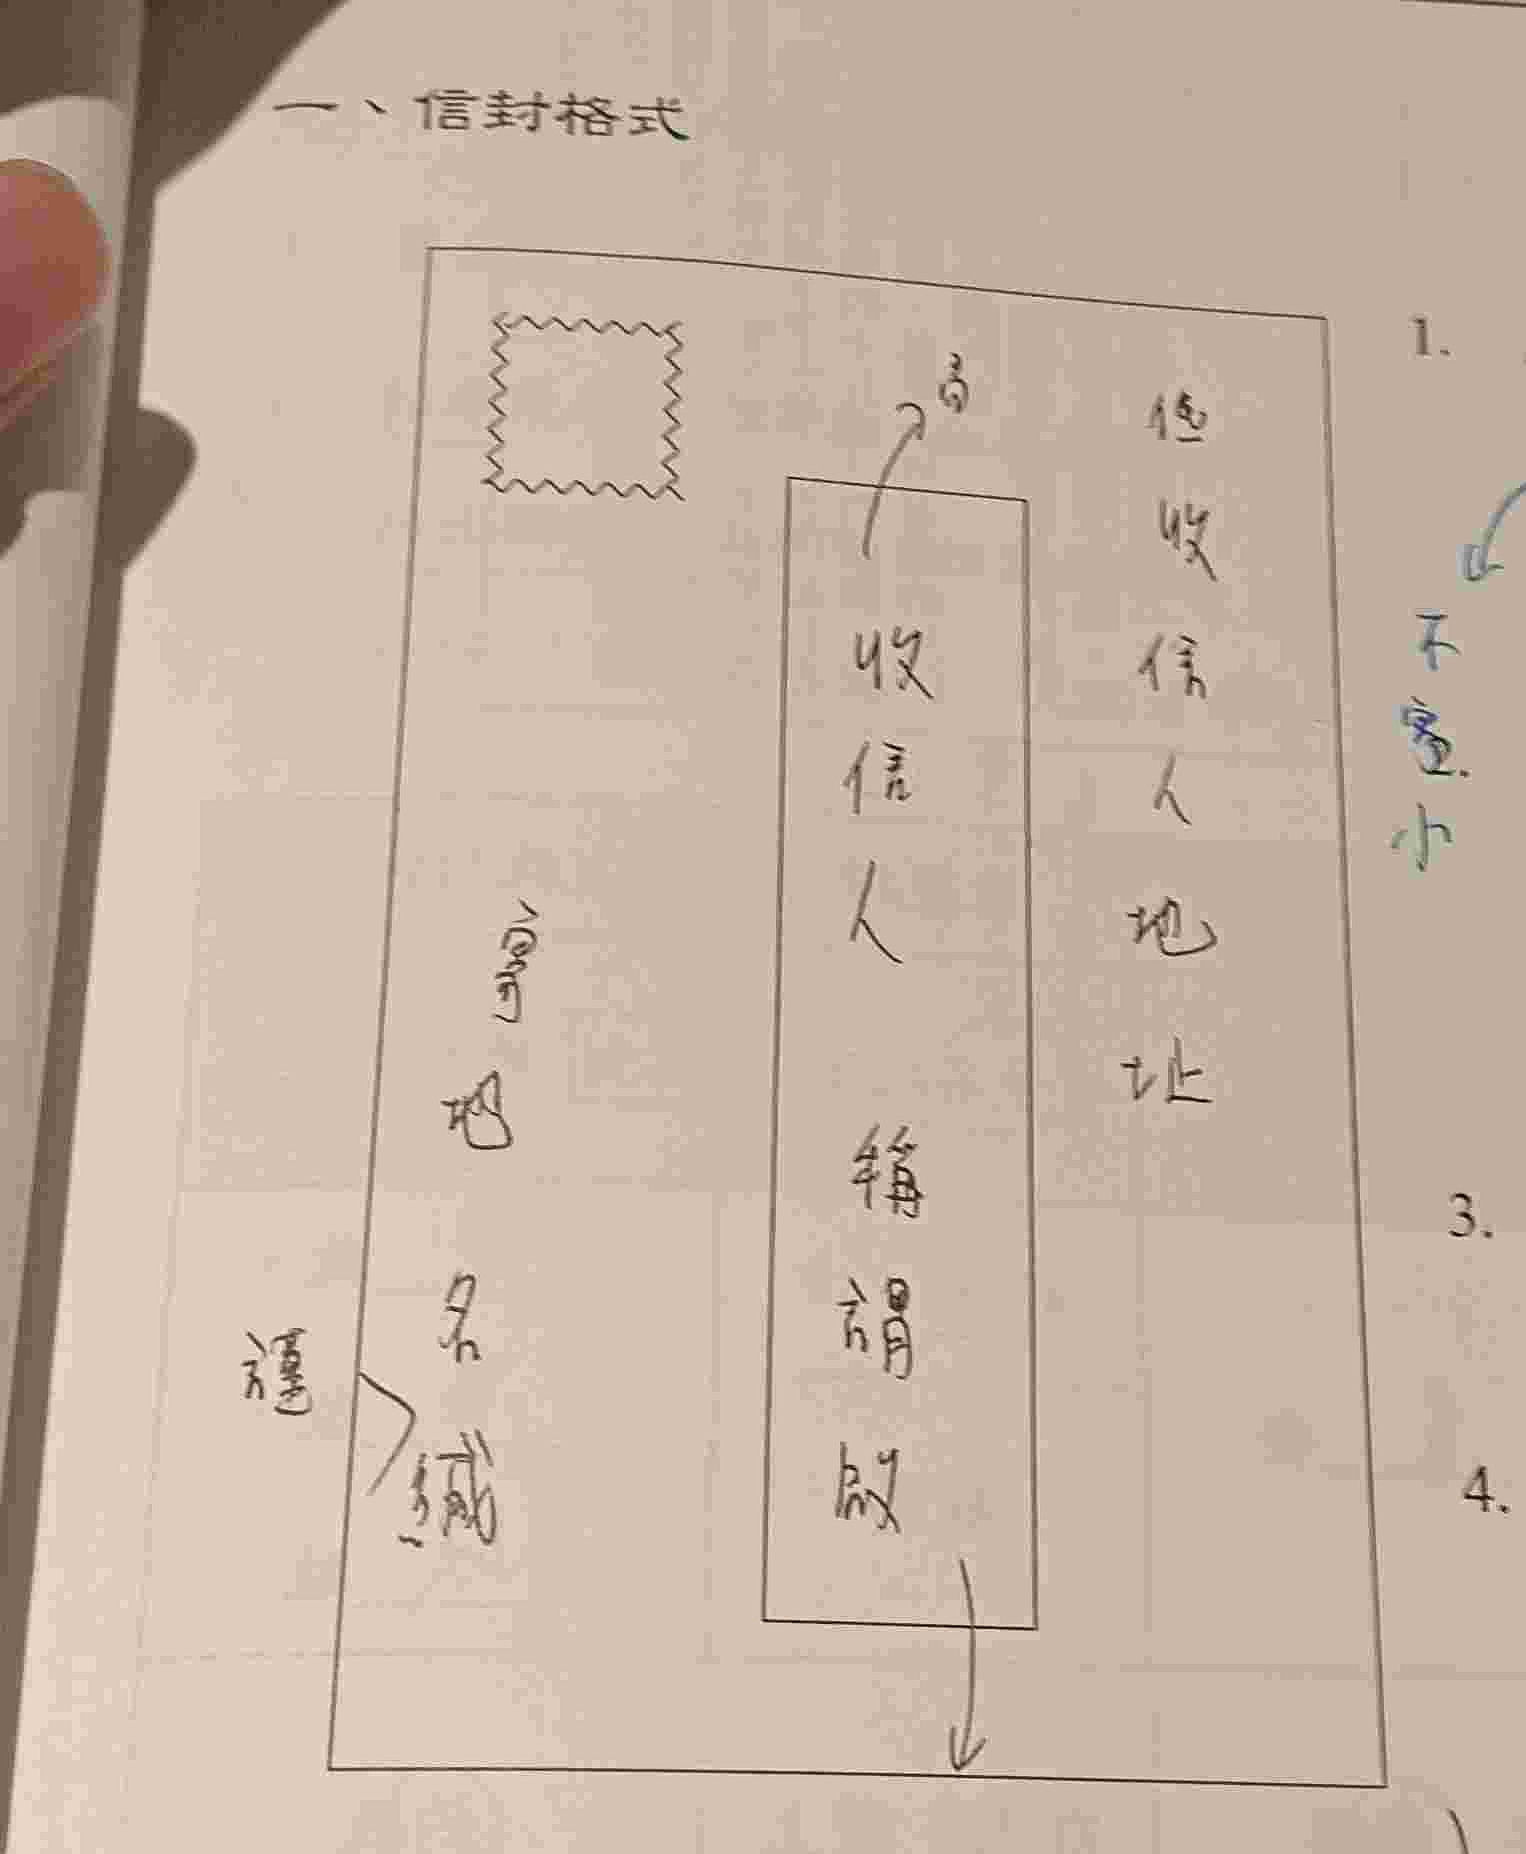 一、信封格式
高
收信人地址
收信人 稱謂 啟
寄
地
名
緘
謹
1.
不
宜
小
3.
4.